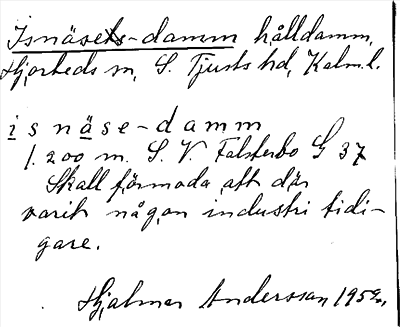 Isnäsets-damm hålldamm,
Hjorteds sn, S. Tjusts hd, Kalm.l.
i s n ä s e - d a m m
1.200 m. S. V. Falsterbo G 37
Skall förmoda att där
varit någon industri tidi-
gare.
Hjalmar Andersson, 1952,